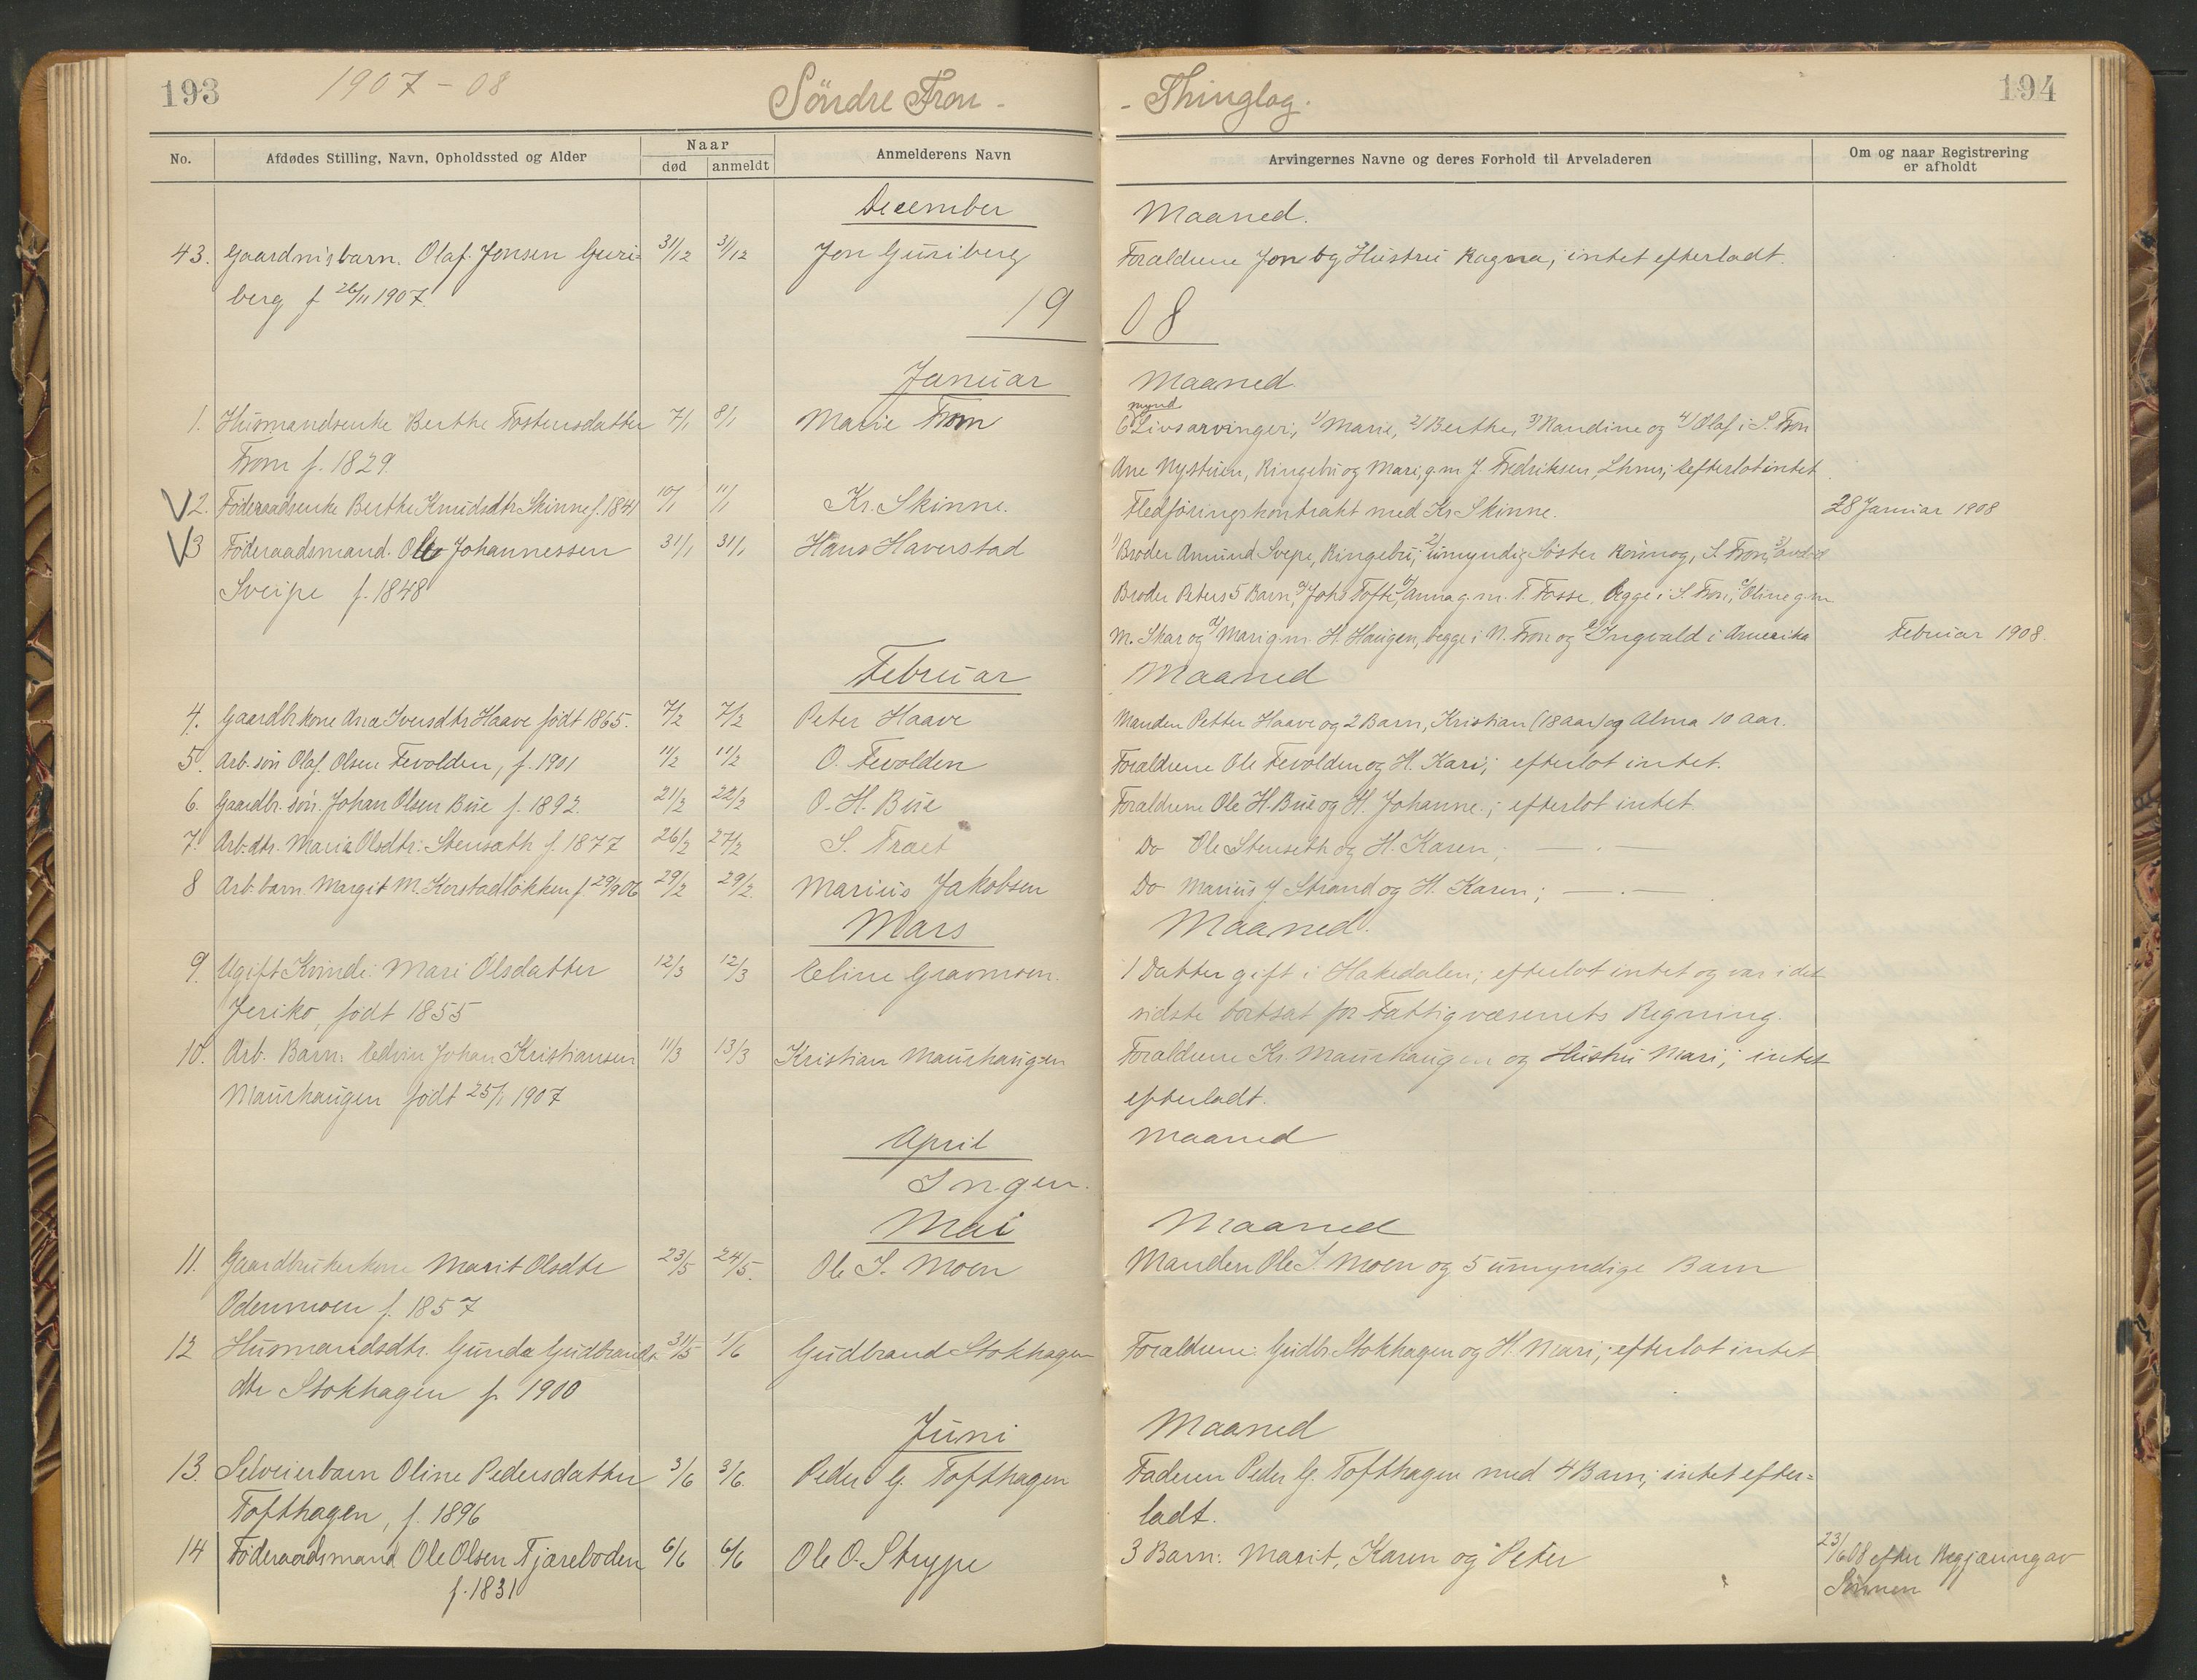 193
1907 - 08
Söndre Fron -
- Thinglag.
194
No.
Afdødes Stilling, Navn, Opholdssted og Alder
Naar
død
anmeldt
Anmelderens Navn
Arvingernes Navne og deres Forhold til Arveladeren
Om og naar Registrering
er afholdt
December Maaned.
43. Gaardmsbarn. Olaf Jonsen Guri- 31/12 31/12 Jon Guriberg Foraldrene Jon og Hustru Ragna; intet efterladt.
berg f 26/11 1907.
1908
Januar Maaned
mynd
1. Husmandsenke Berthe Tostensdatter 7/1 8/1 Marie Trom 6 Livsarvinger, 1/ Marie, 2/ Berthe, 3/ Randine og 4/ Olaf i S. Fron
Trom f. 1829. Ane Nystuen, Ringebu og Mari, g.m. J. Fredriksen, Lhmr; efterlot intet
V 2. Föderaadsenke Berthe Knudsdtr Skinne f. 1841 10/1 11/1 Kr. Skinne. Fledføringskontrakt med Kr Skinne. 28 Januar 1908
V 3 Föderaadsmand. Ole Johannessen 31/1 31/1 Hans Haverstad 1/ Broder Amund Svepe, Ringebu; 2/ umyndig Søster Rönnog, S. Fron, 3/ avdød
Sveipe f. 1848 Broder Peters 5 Barn, a/ Johs Tofte, b/ Anna g.m. T. Fosse, begge i S. Fron, c/ Oline g.m.
M. Skar og d/ Mari g.m. H. Haugen, begge i N. Fron og e/ Ingvald i Amerika Februar 1908.
Februar Maaned
4. Gaardbrkone Ana Iversdtr Haave født 1865. 7/2 7/2 Peter Haave Manden Petter Haave og 2 Barn, Kristian (18 aar) og Alma 10 aar.
5. Arb. søn Olaf Olsen Tevolden, f. 1901 11/2 11/2 O. Tevolden Foraldrene Ole Tevolden og H. Kari; efterlot intet.
6. Gaardbr. søn. Johan Olsen Bue f. 1892. 21/2 22/2 O. H. Bue Foraldrene Ole H. Bue og H. Johanne.; efterlot intet
7. Arb. dtr. Maria Olsdtr. Stensath f. 1877 26/2 27/2 S. Traet Do Ole Stenseth og H. Karen; — . —
8 Arb. barn. Margit M. Korstadløkken f. 29/9 06 29/2 29/2. Marius Jakobsen Do Marius J. Strand og H. Karen; — . —
Mars Maaned.
9. Ugift Kvinde: Mari Olsdatter 12/3 12/3 Eline Gravmoen. 1 Datter gift i Hakedalen; efterlot intet og var i det
Jeriko, født 1855 sidste bortsat for Fattigvæsenets Regning.
10. Arb. Barn: Edvin Johan Kristiansen 11/3 13/3 Kristian Maurhaugen Foraldrene Kr. Maurhaugen og Hustru Mari; intet
Maurhaugen født 25/1 1907 efterladt.
April Maaned
Ingen.
Mai Maaned
11. Gaardbrukerkone Marit Olsdtr 23/5 24/5. Ole S. Moen Manden Ole S. Moen og 5 umyndige Barn
Odenmoen f. 1857
12 Husmandsdtr. Gunda Gudbrands 31/5 1/6 Gudbrand Stokhagen Foraldrene: Gudbr. Stokhagen og H. Mari; efterlot intet
dtr Stokhagen f. 1900
Juni Maaned
13. Selveierbarn Oline Pedersdatter 3/6 3/6. Peder G. Tofthagen Faderen Peder G. Tofthagen med 4 Barn; intet efter-
Tofthagen, f. 1896 ladt.
14 Föderaadsmand Ole Olsen Tjæreboden 6/6 6/6 Ole O. Strype 3 Barn: Marit, Karen og Peter 23/6 08 efter Begjæring av
f. 1831 Sønnen